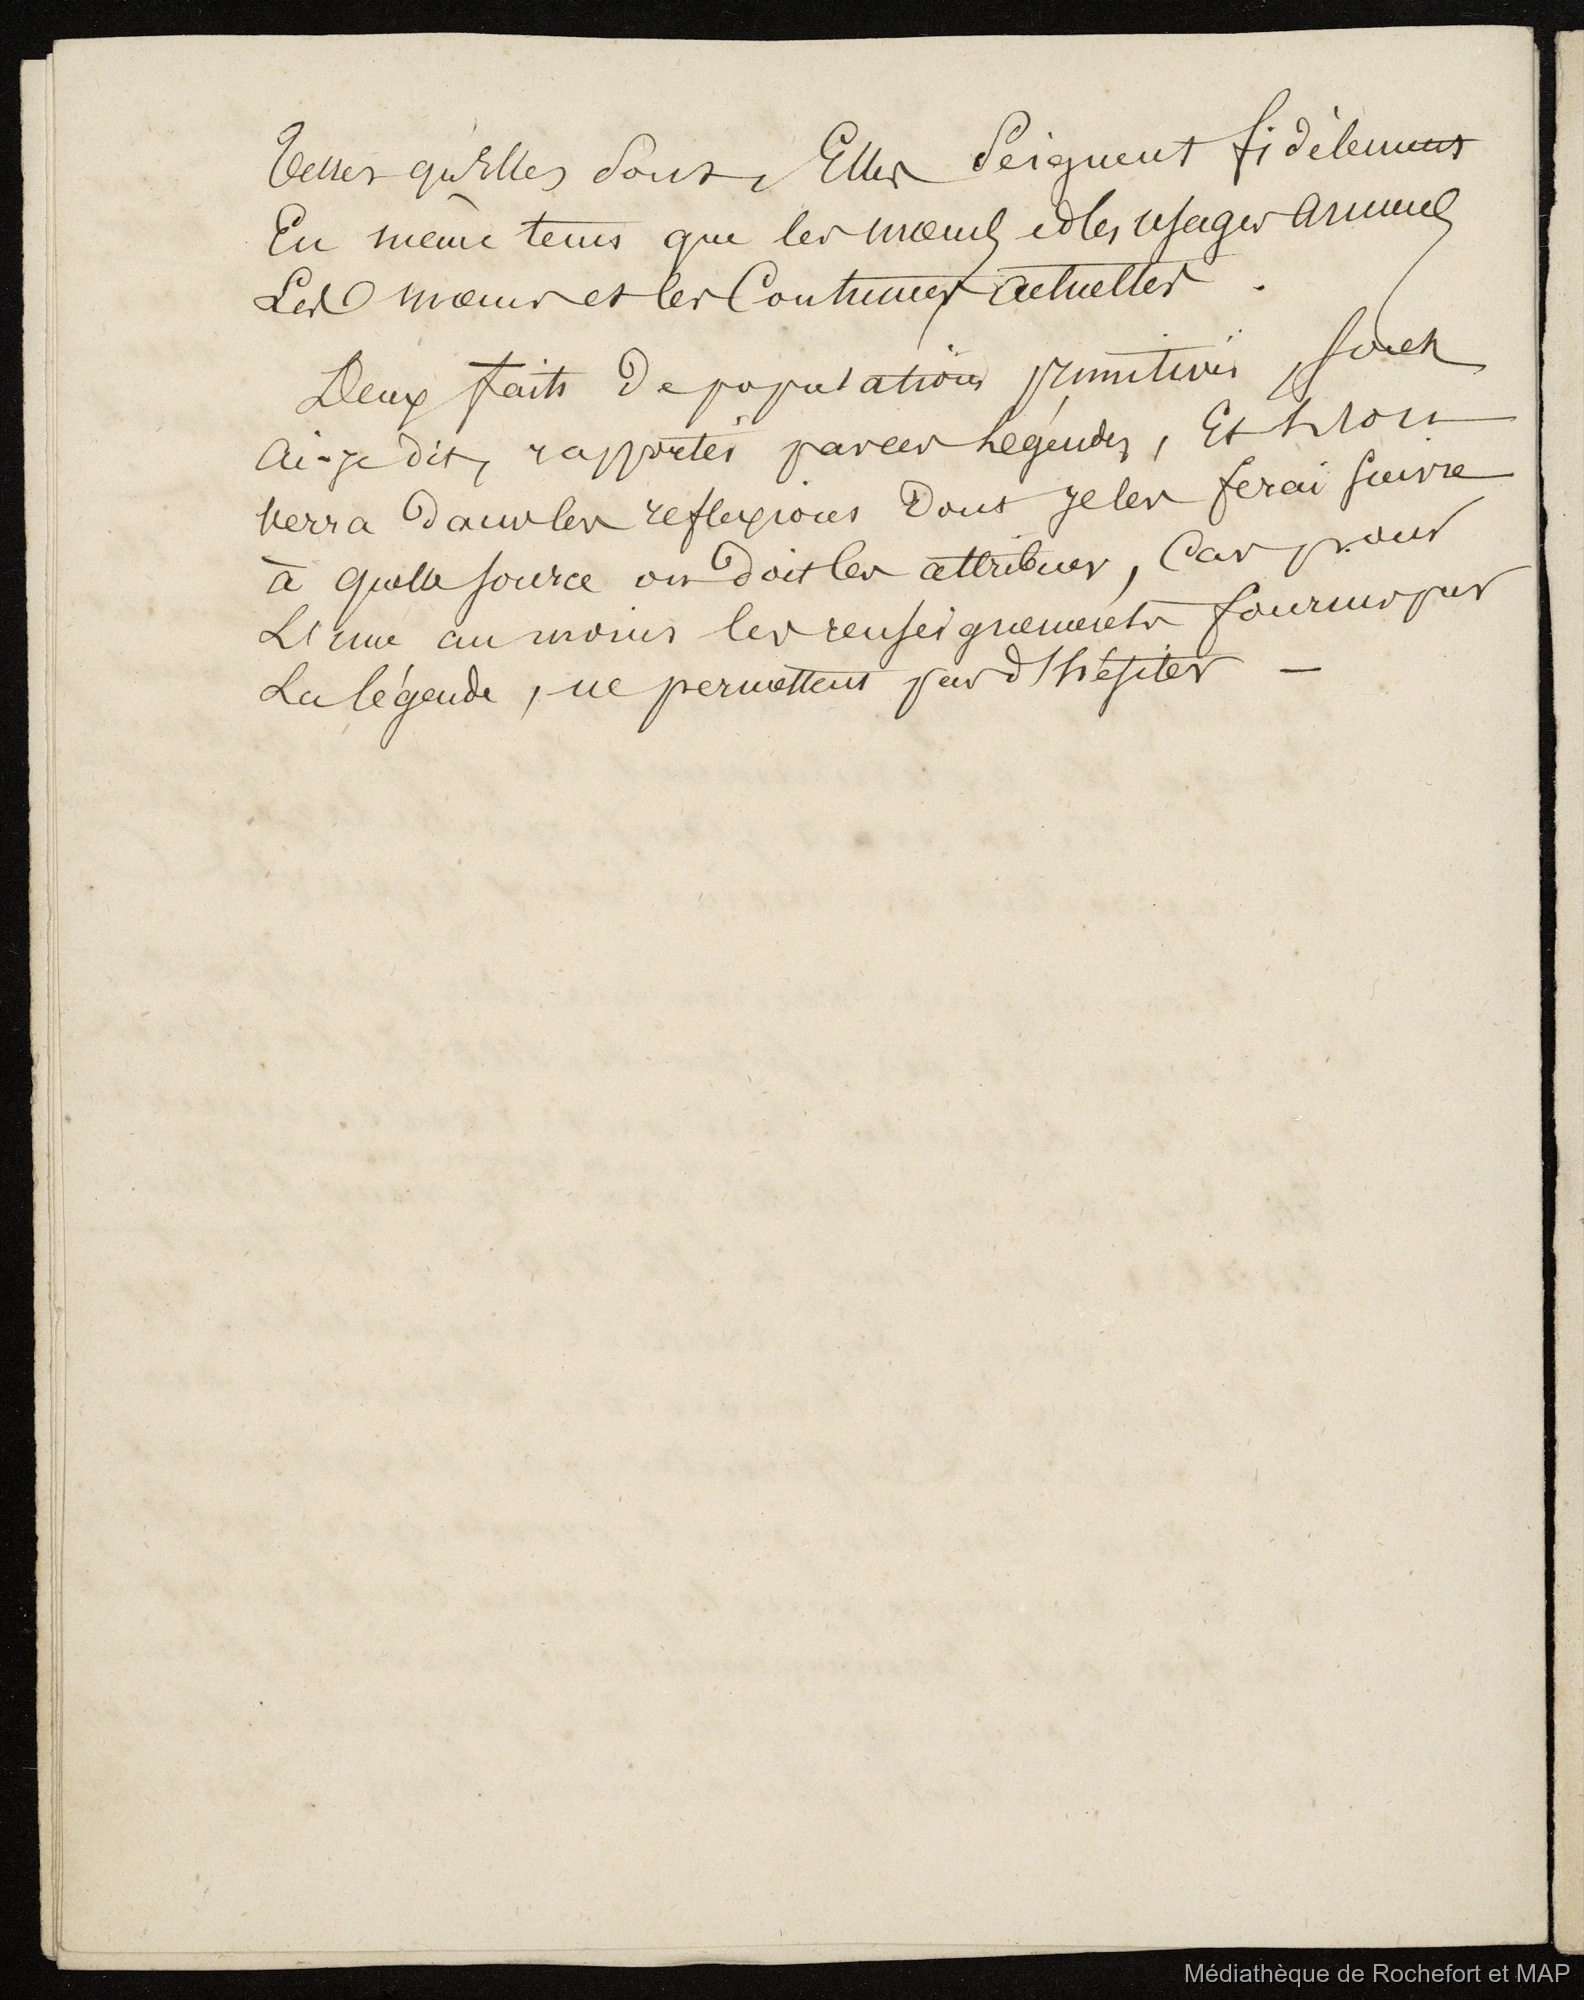 Telles qu'Elles sont, Elles Peignent fidèlement
En même tems que les mœurs et les usages anciens
Les mœurs et les Coutumes actuelles .
Deux faits de populations primitives, sont
ai-je dit, rapportés par ces Légendes, Et l'on
verra dans les reflexions dont je les ferai suivre
à quelle source on doit les attribuer, Car pour
L'une au moins les renseignements fournis par
La légende, ne permettent pas d'hésiter —
Médiathèque de Rochefort et MAP